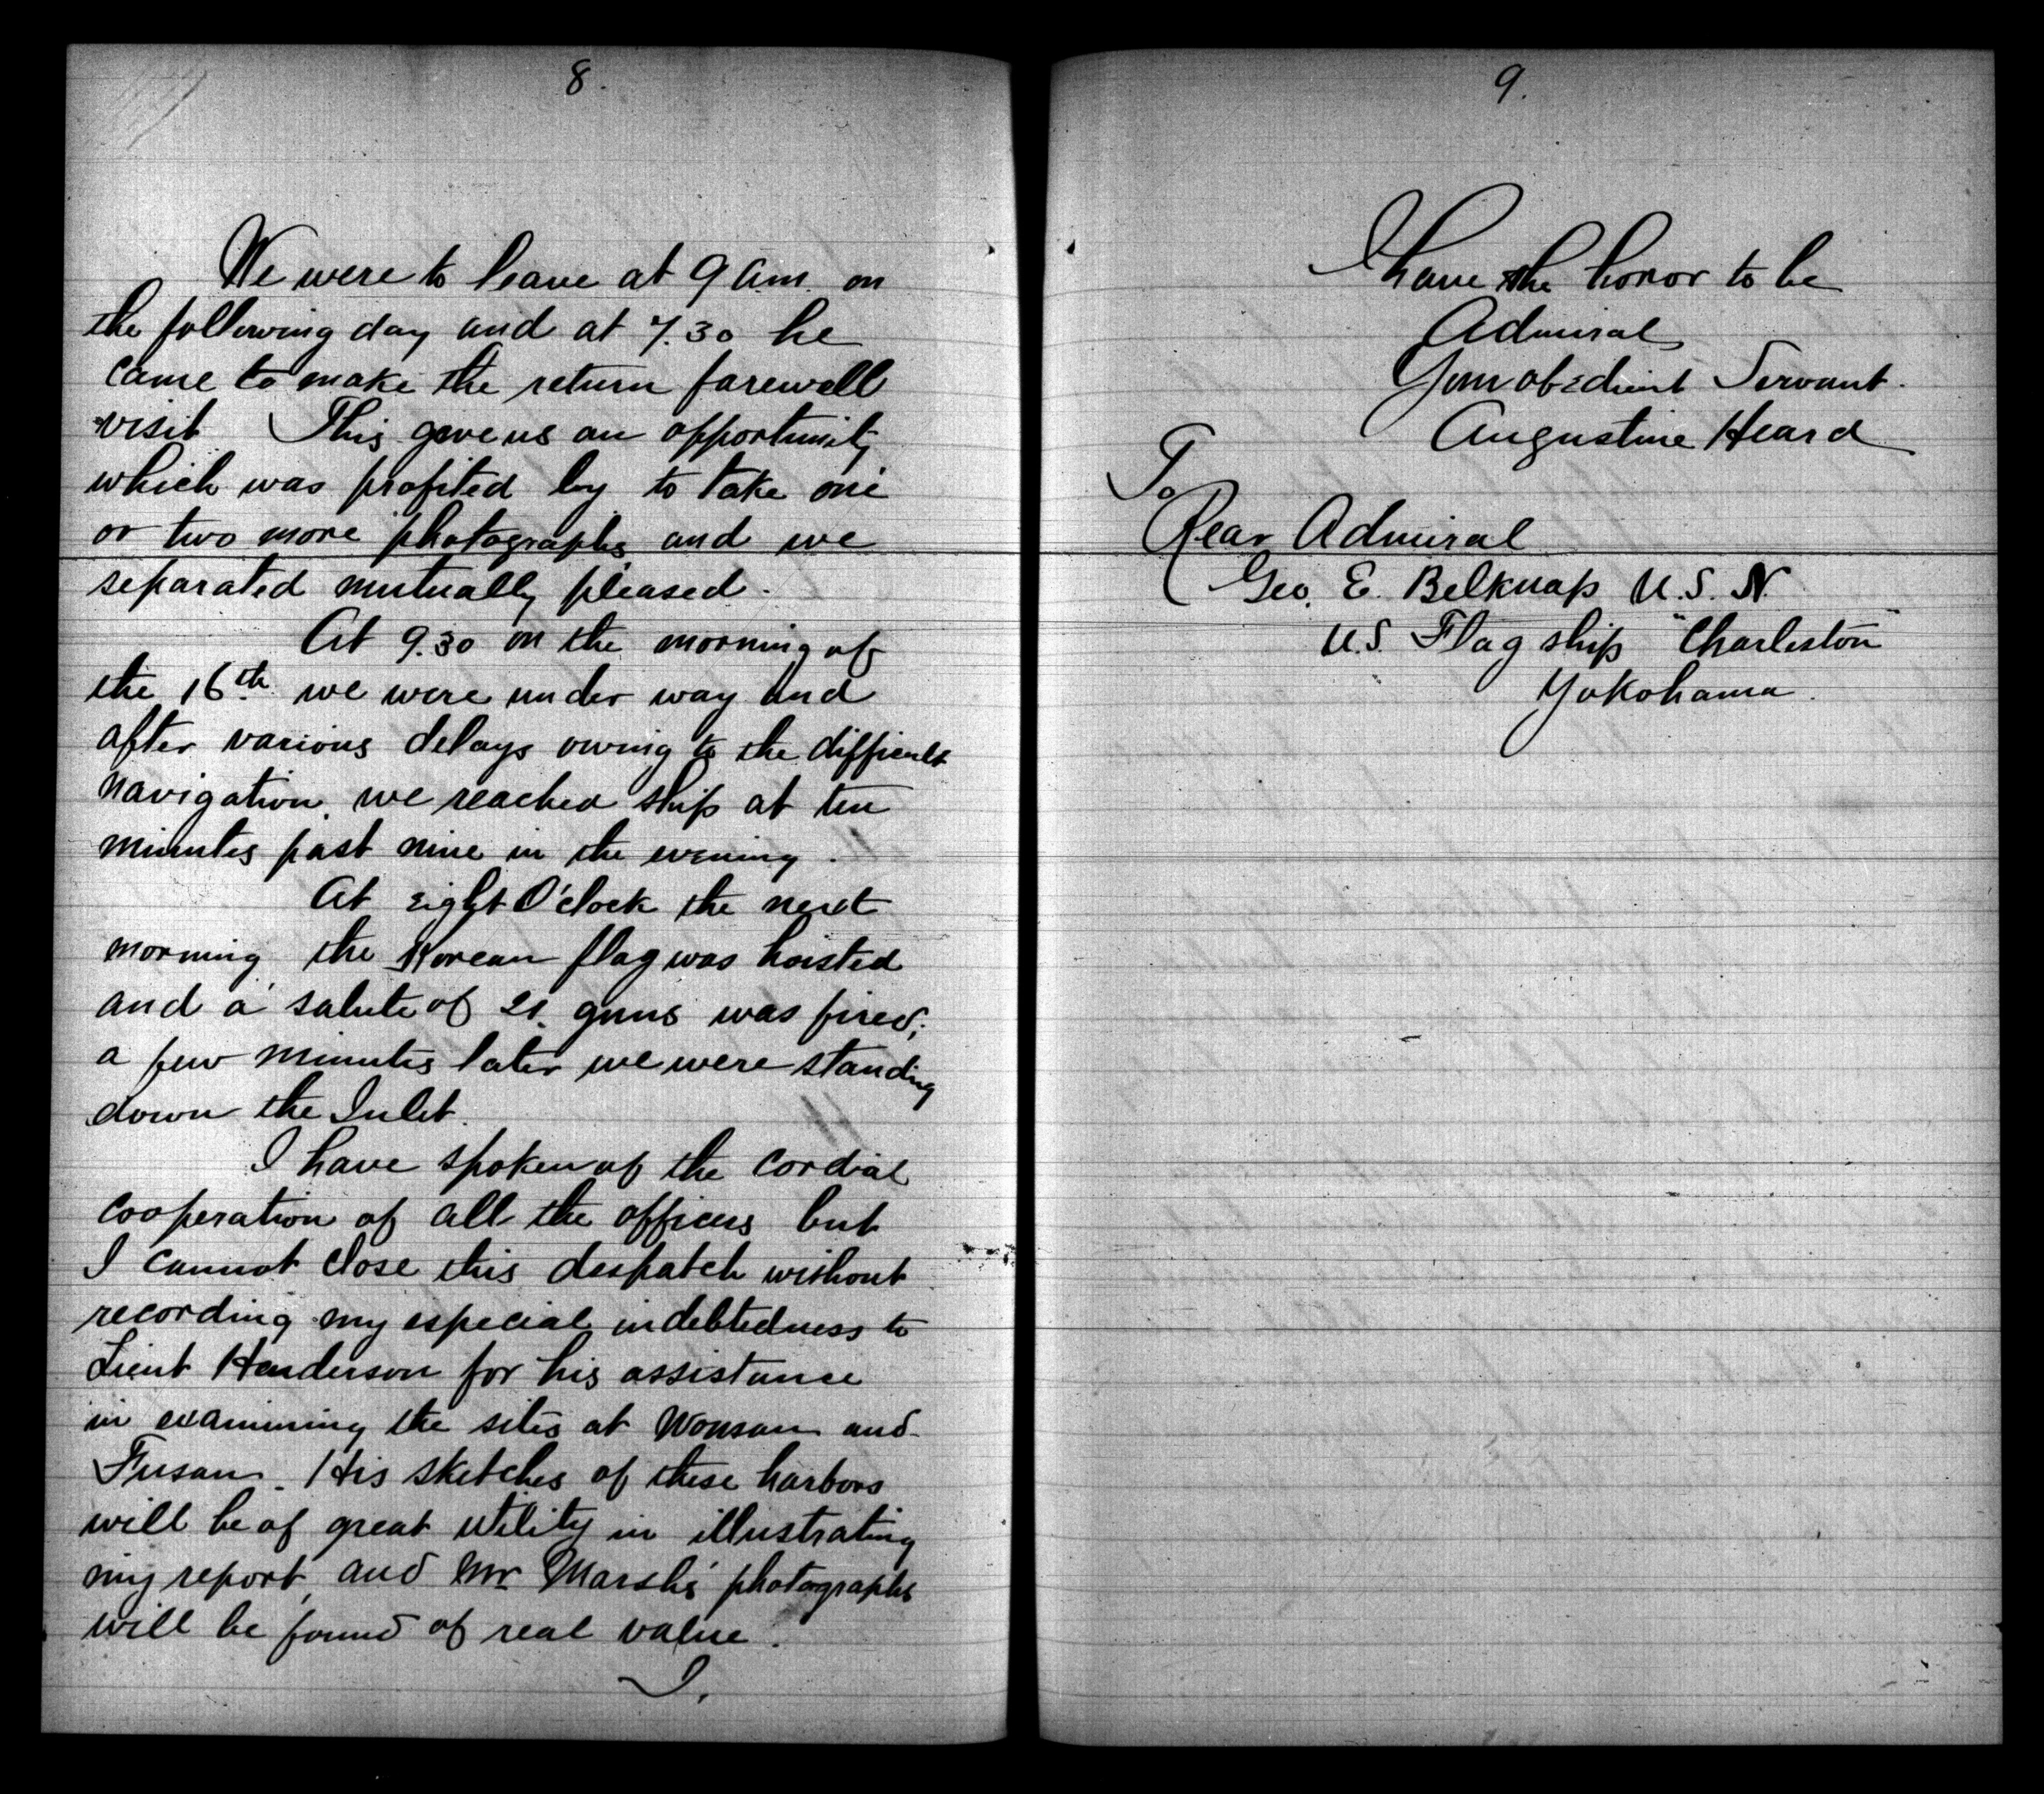 8.
We were to leave at 9 a.m. on
the following day and at 7.30 he
came to make the return farewell
visit This gave us an opportunity
which was profited by to take one
or two more photographs and we
separated mutually pleased.
At 9.30 on the morning of
the 16th we were under way and
after various delays owing to the difficult
navigation, we reached ship at ten
minutes past nine in the evening.
At eight O'clock the next
morning, the Korean flag was hoisted
and a salute of 21. guns was fired;
a few minutes later we were standing
down the Inlet.
I have spoken of the cordial
cooperation of all the officers but
I cannot close this despatch without
recording my especial indebtedness to
Lieut Henderson for his assistance
in examining the sites at Wonsan and
Fusan. His sketches of these harbors
will be of great utility in illustrating
my report, and Mr Marsh's photographs
will be found of real value.
I.
9.
I have the honor to be
Admiral
Your obedient Servant.
Augustine Heard
To
Rear Admiral
Geo. E. Belknap U.S.N.
U.S. Flag ship "Charleston"
Yokohama.